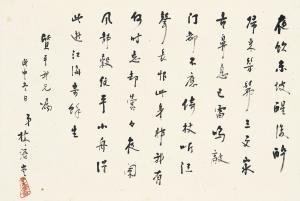 夜飲東坡醒復醉
歸來髣髴三更家
童鼻息已雷鳴敲
門都不應倚杖聽江
聲長恨此身非我有
何時忘却營々夜闌
風靜縠紋平小舟從
此逝江海寄餘生
平
弟